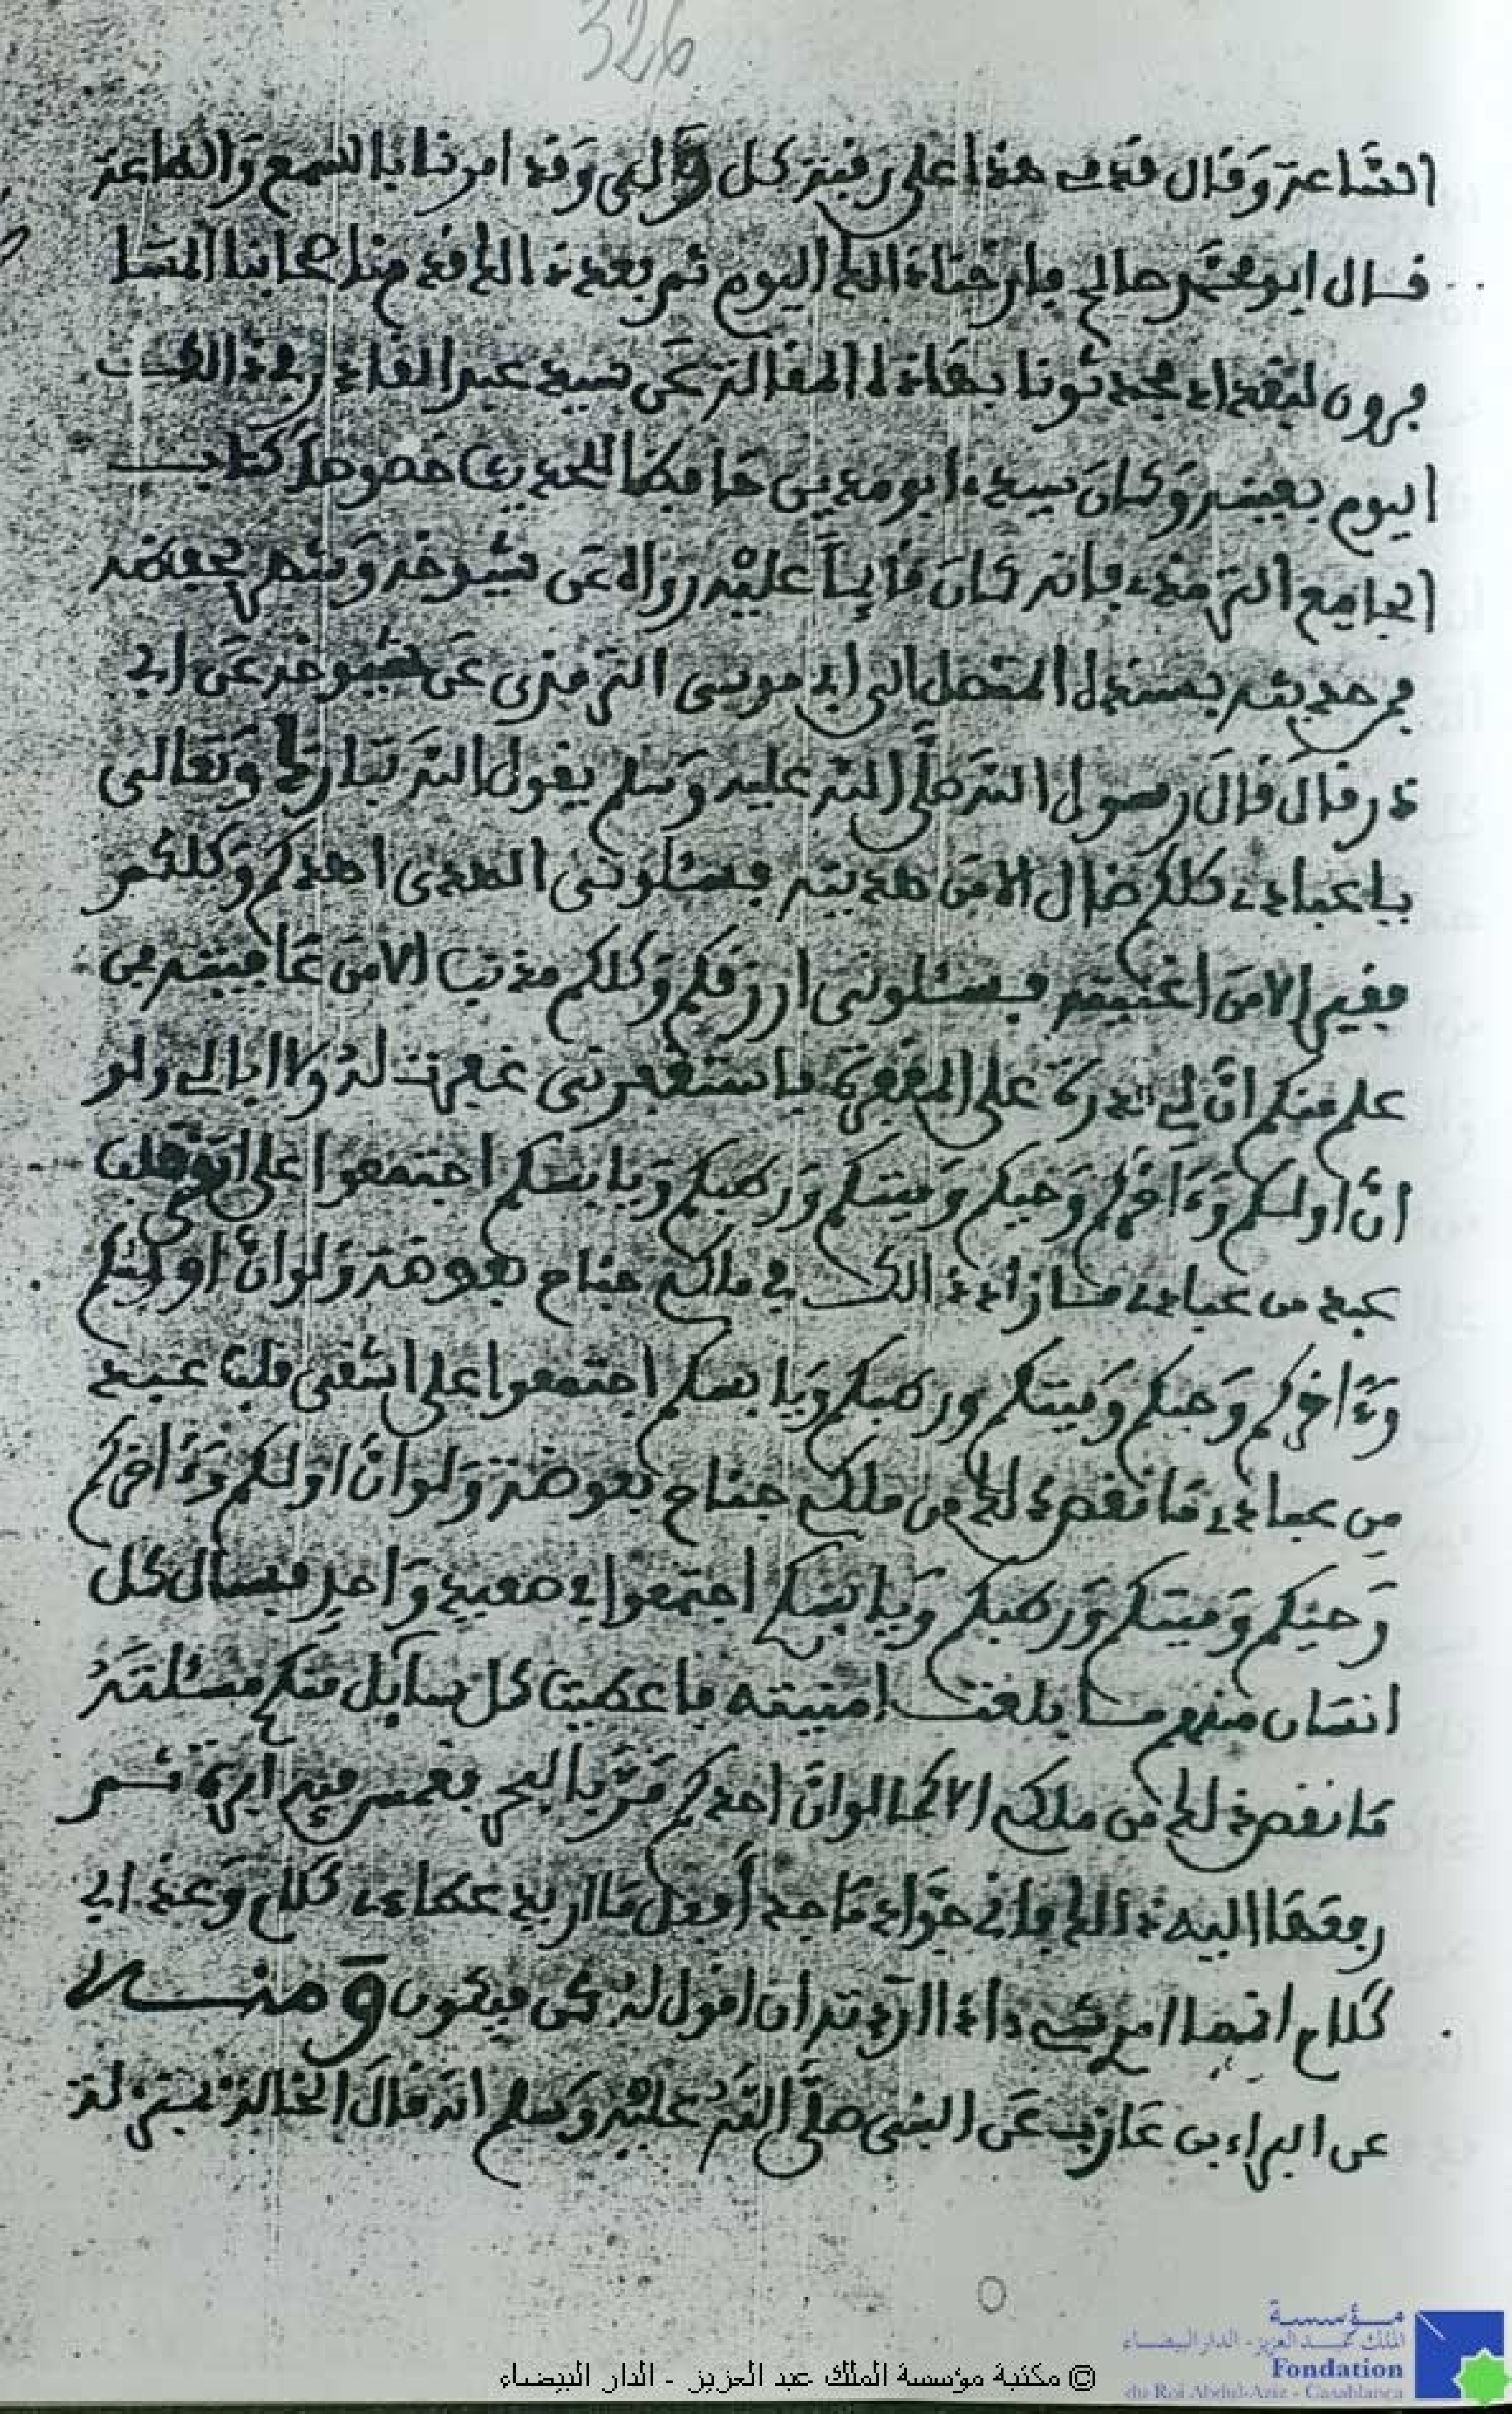 326
الساعة وقال قدمي هذا على رقبة كل ولي وقد امرنا بالسمع والطاعة
قال ابو محمد صالح فارخنا ذالك اليوم ثم بعد ذالك قدم منا صحابنا المسا
فرون لبغداد فحدثونا بهاذه المقالة عن سيد عبد القادر في ذالك
اليوم بعينه وكان سيد ابو مدين حافظا للحديث خصوصا كتاب
الجامع الترمذي فانه كان قايما عليه رواه عن شيوخه وشهر بحفظه
فمر حديثه بسنده المتصل الى ابي موسى الترمذي عن شيوخه عن ابي
ذر قال قال رسول الله صلى الله عليه وسلم يقول الله تبارك وتعالى
يا عبادي كلكم ضال الا من هديته فسئلوني الهدى اهدكم وكلكم
فقير الا من اغنيته فسئلوني ارزقكم وكلكم مذنب الا من عافيته من
علم منكم ان لي قدرة على المغفرة فاستغفرني غفرت له ولا ابالي ولو
ان اولكم وءاخركم وحيكم وميتكم ورطبكم ويابسكم اجتمعوا على اتقى قلب
عبد من عبادي ما زاد ذالك في ملكي جناح بعوضة ولو ان اولكم
وءاخركم وحيكم وميتكم ورطبكم ويابسكم اجتمعوا على اشقى قلب عبد
من عبادي ما نقص ذلك من ملكي جناح بعوضة ولو ان اولكم وءاخركم
وحيكم وميتكم ورطبكم ويابسكم اجتمعوا في صعيد واحد فيسال كل
انسان منهم ما بلغت امنيته فاعطيت كل سايل منكم مسئلته
ما نقص ذلك من ملكي الا كما لو ان احدكم مر بالبحر فغمس فيه ابرة ثم
رفعها اليه ذالك فاني جواد ماجد افعل ما اريد عطاءي كلام وعذابي
كلام انما امري لشيء اذا اردته ان اقول له كن فيكون ومنه
عن البراء بن عازب عن النبي صلى الله عليه وسلم انه قال الخالة بمنزلة
مؤسسة
الملك عبد العزيز - الدار البيضاء
Fondation
du Roi Abdul-Aziz - Casablanca
© مكتبة مؤسسة الملك عبد العزيز - الدار البيضاء